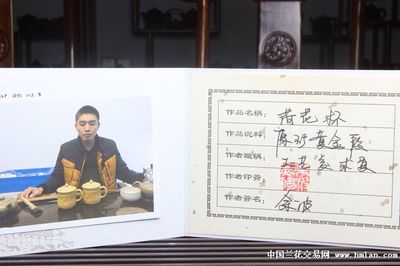 作品名稱: 荷花杯
作品泥料: 原矿黄金段
作者職稱: 工艺美术員
作者印簽:
作者簽名: 余波
中国兰花交易网 www.hmlan.com